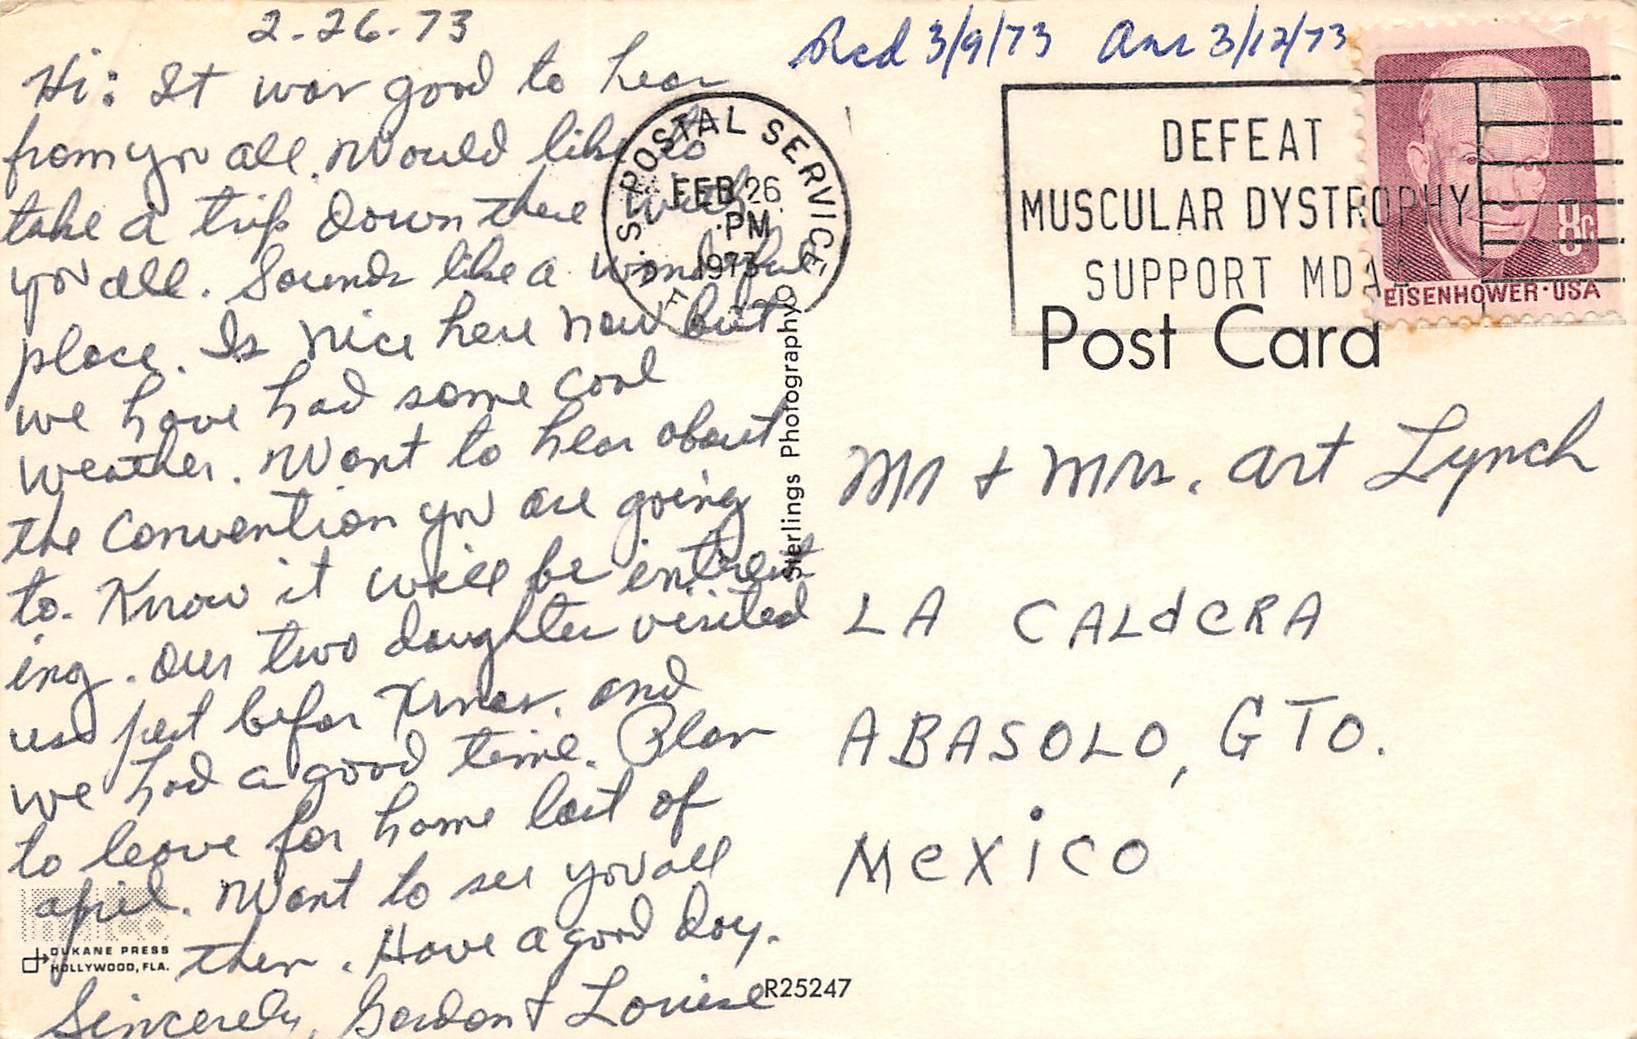 2-26-73
Hi: It was good to hear
from you all. Would like to
take a trip down there with
you all. Sounds like a wonderful
place. Is nice here now but
we have had some cool
weather. Want to hear about
the convention you are going
to. Know it will be intrest
ing. Our two daughter visited
us just befor Xmas. and
we had a good time. Plan
to leave for home last of
april. Want to see you all
then. Have a good day.
Sincerely, Gordon & Louise
DUKANE PRESS
HOLLYWOOD, FLA.
Sterlings Photography
R25247
Rcd 3/9/73 Ans 3/12/73
U.S. POSTAL SERVICE
FEB 26
PM
1973
DEFEAT
MUSCULAR DYSTROPHY
SUPPORT MDAA
8c
EISENHOWER·USA
Post Card
Mr & Mrs. Art Lynch
LA CALdeRA
ABASOLO, GTO.
MeXiCO